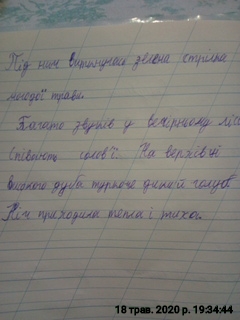 Під ним витяглася зелена стрілка
молодої трави.
Багато звуків у вечірньому лісі
Співають солов'ї. На верхівці
високого дуба туркоче дикий голуб
Ніч приходила тепла і тиха.
18 трав. 2020 р. 19:34:44